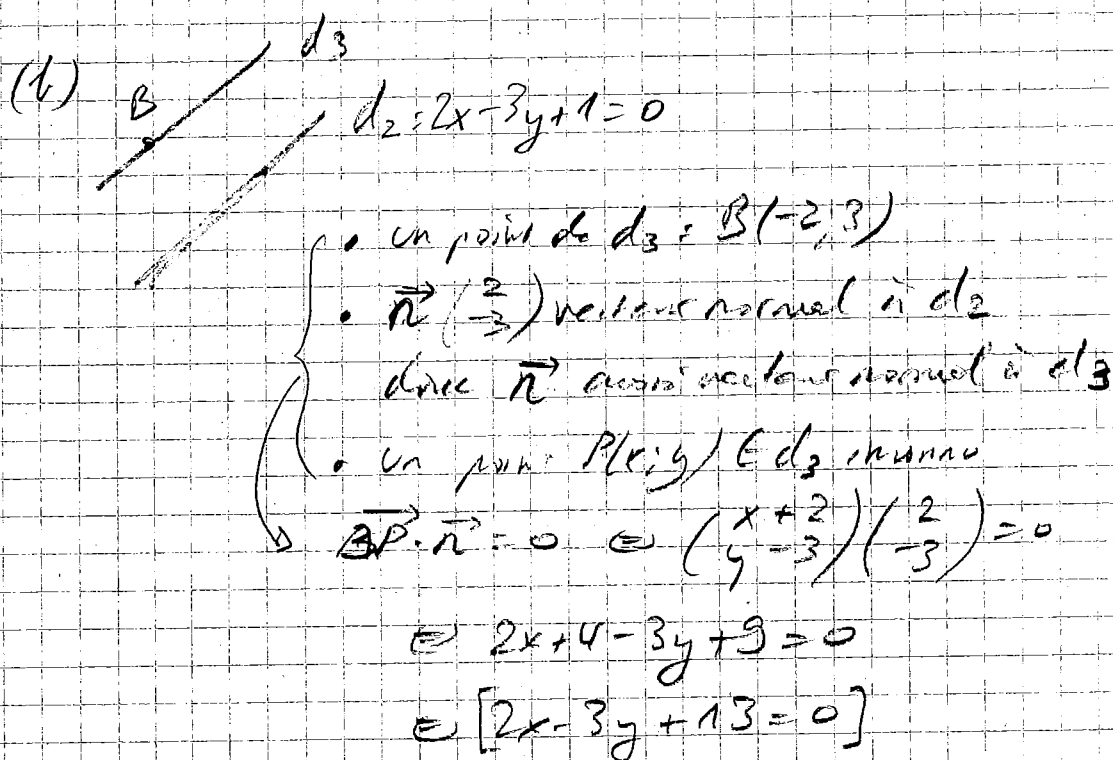 (b) B d3
d2 : 2x-3y+1=0
• un point de d3 : B(-2;3)
• n⃗ (2 -3) vecteur normal à d2
donc n⃗ aussi vecteur normal à d3
• un point P(x;y) ∈ d3 inconnu
BP⃗ · n⃗ = 0 ⇔ (x+2 y-3)(2 -3) = 0
⇔ 2x+4-3y+9=0
⇔ [2x-3y+13=0]